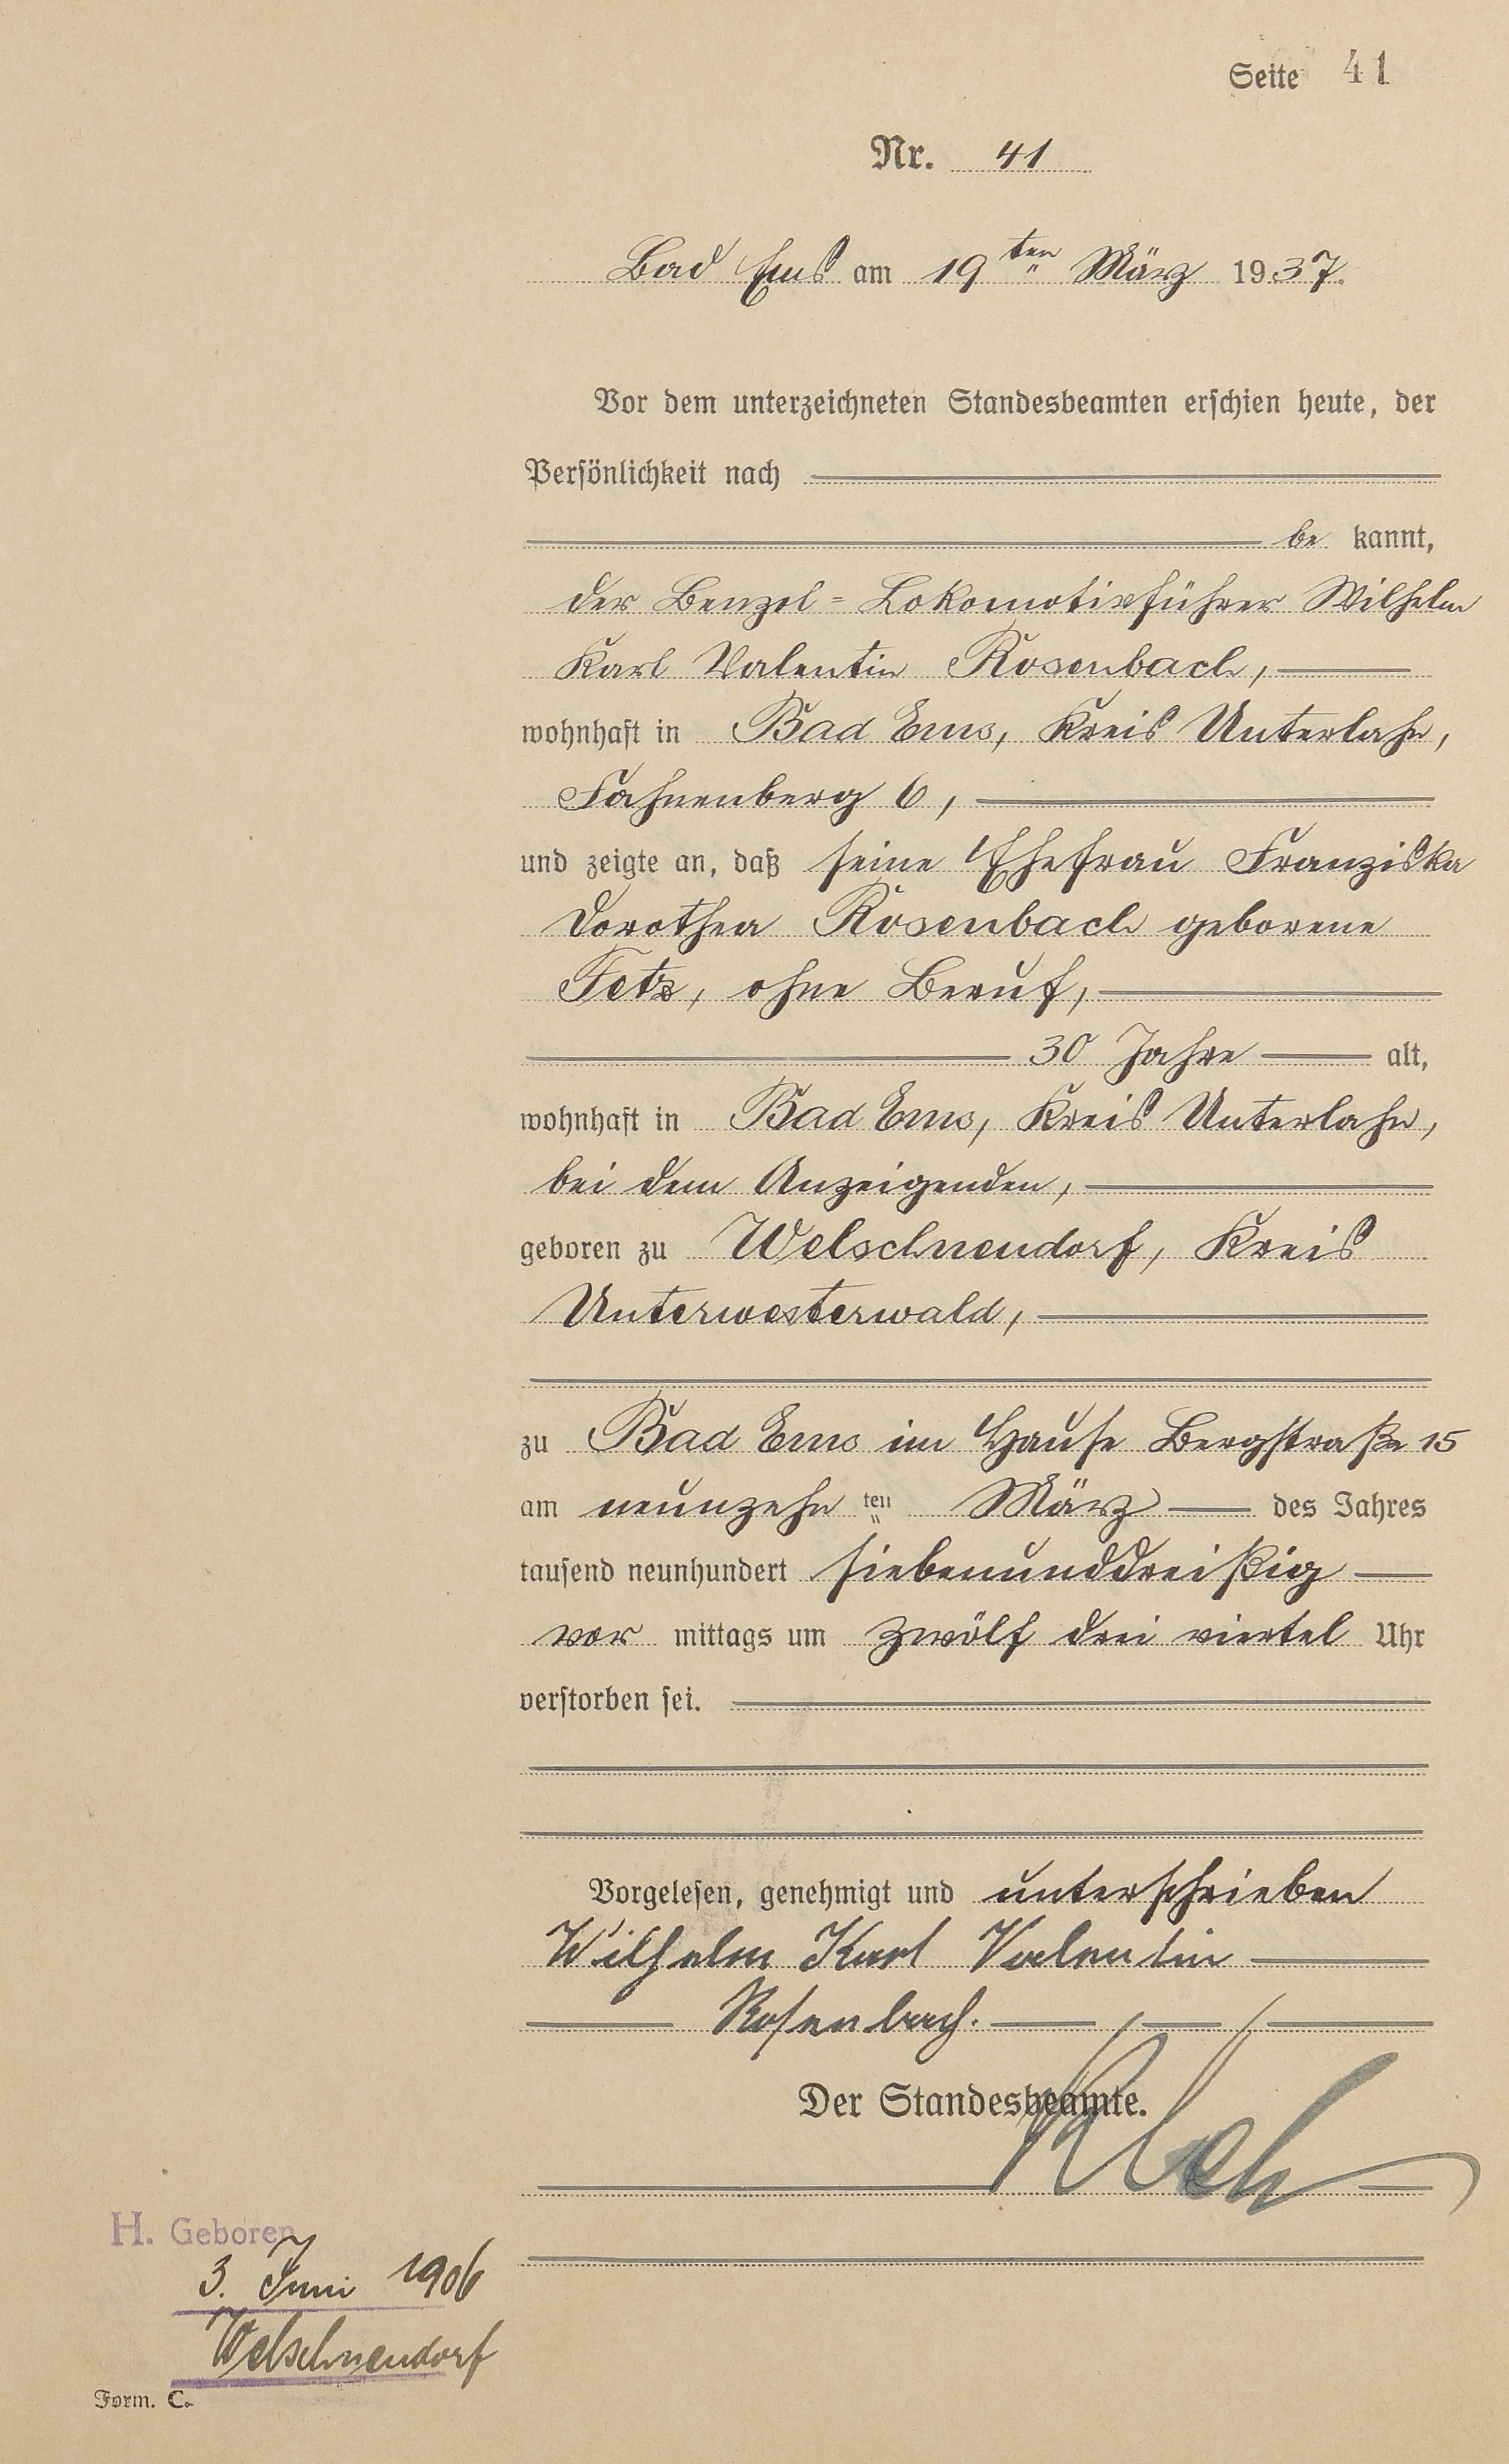 Seite 41
Nr. 41
Bad Ems am 19ten März 1937.
Vor dem unterzeichneten Standesbeamten erschien heute, der
Persönlichkeit nach
be kannt,
der Benzol=Lokomotivführer Wilhelm
Karl Valentin Rosenbach,
wohnhaft in Bad Ems, Kreis Unterlahn,
Fahnenberg 6,
und zeigte an, daß seine Ehefrau Franziska
Dorothea Rosenbach geborene
Fetz, ohne Beruf,
30 Jahre alt,
wohnhaft in Bad Ems, Kreis Unterlahn,
bei dem Anzeigenden,
geboren zu Welschneudorf, Kreis
Unterwesterwald,
zu Bad Ems im Hause Bergstraße 15
am neunzehn ten März des Jahres
tausend neunhundert siebenunddreißig
vor mittags um zwölf drei viertel Uhr
verstorben sei.
Vorgelesen, genehmigt und unterschrieben
Wilhelm Karl Valentin
Rosenbach.
Der Standesbeamte.
H. Geboren
3. Juni 1906
Welschneudorf
Form. C.